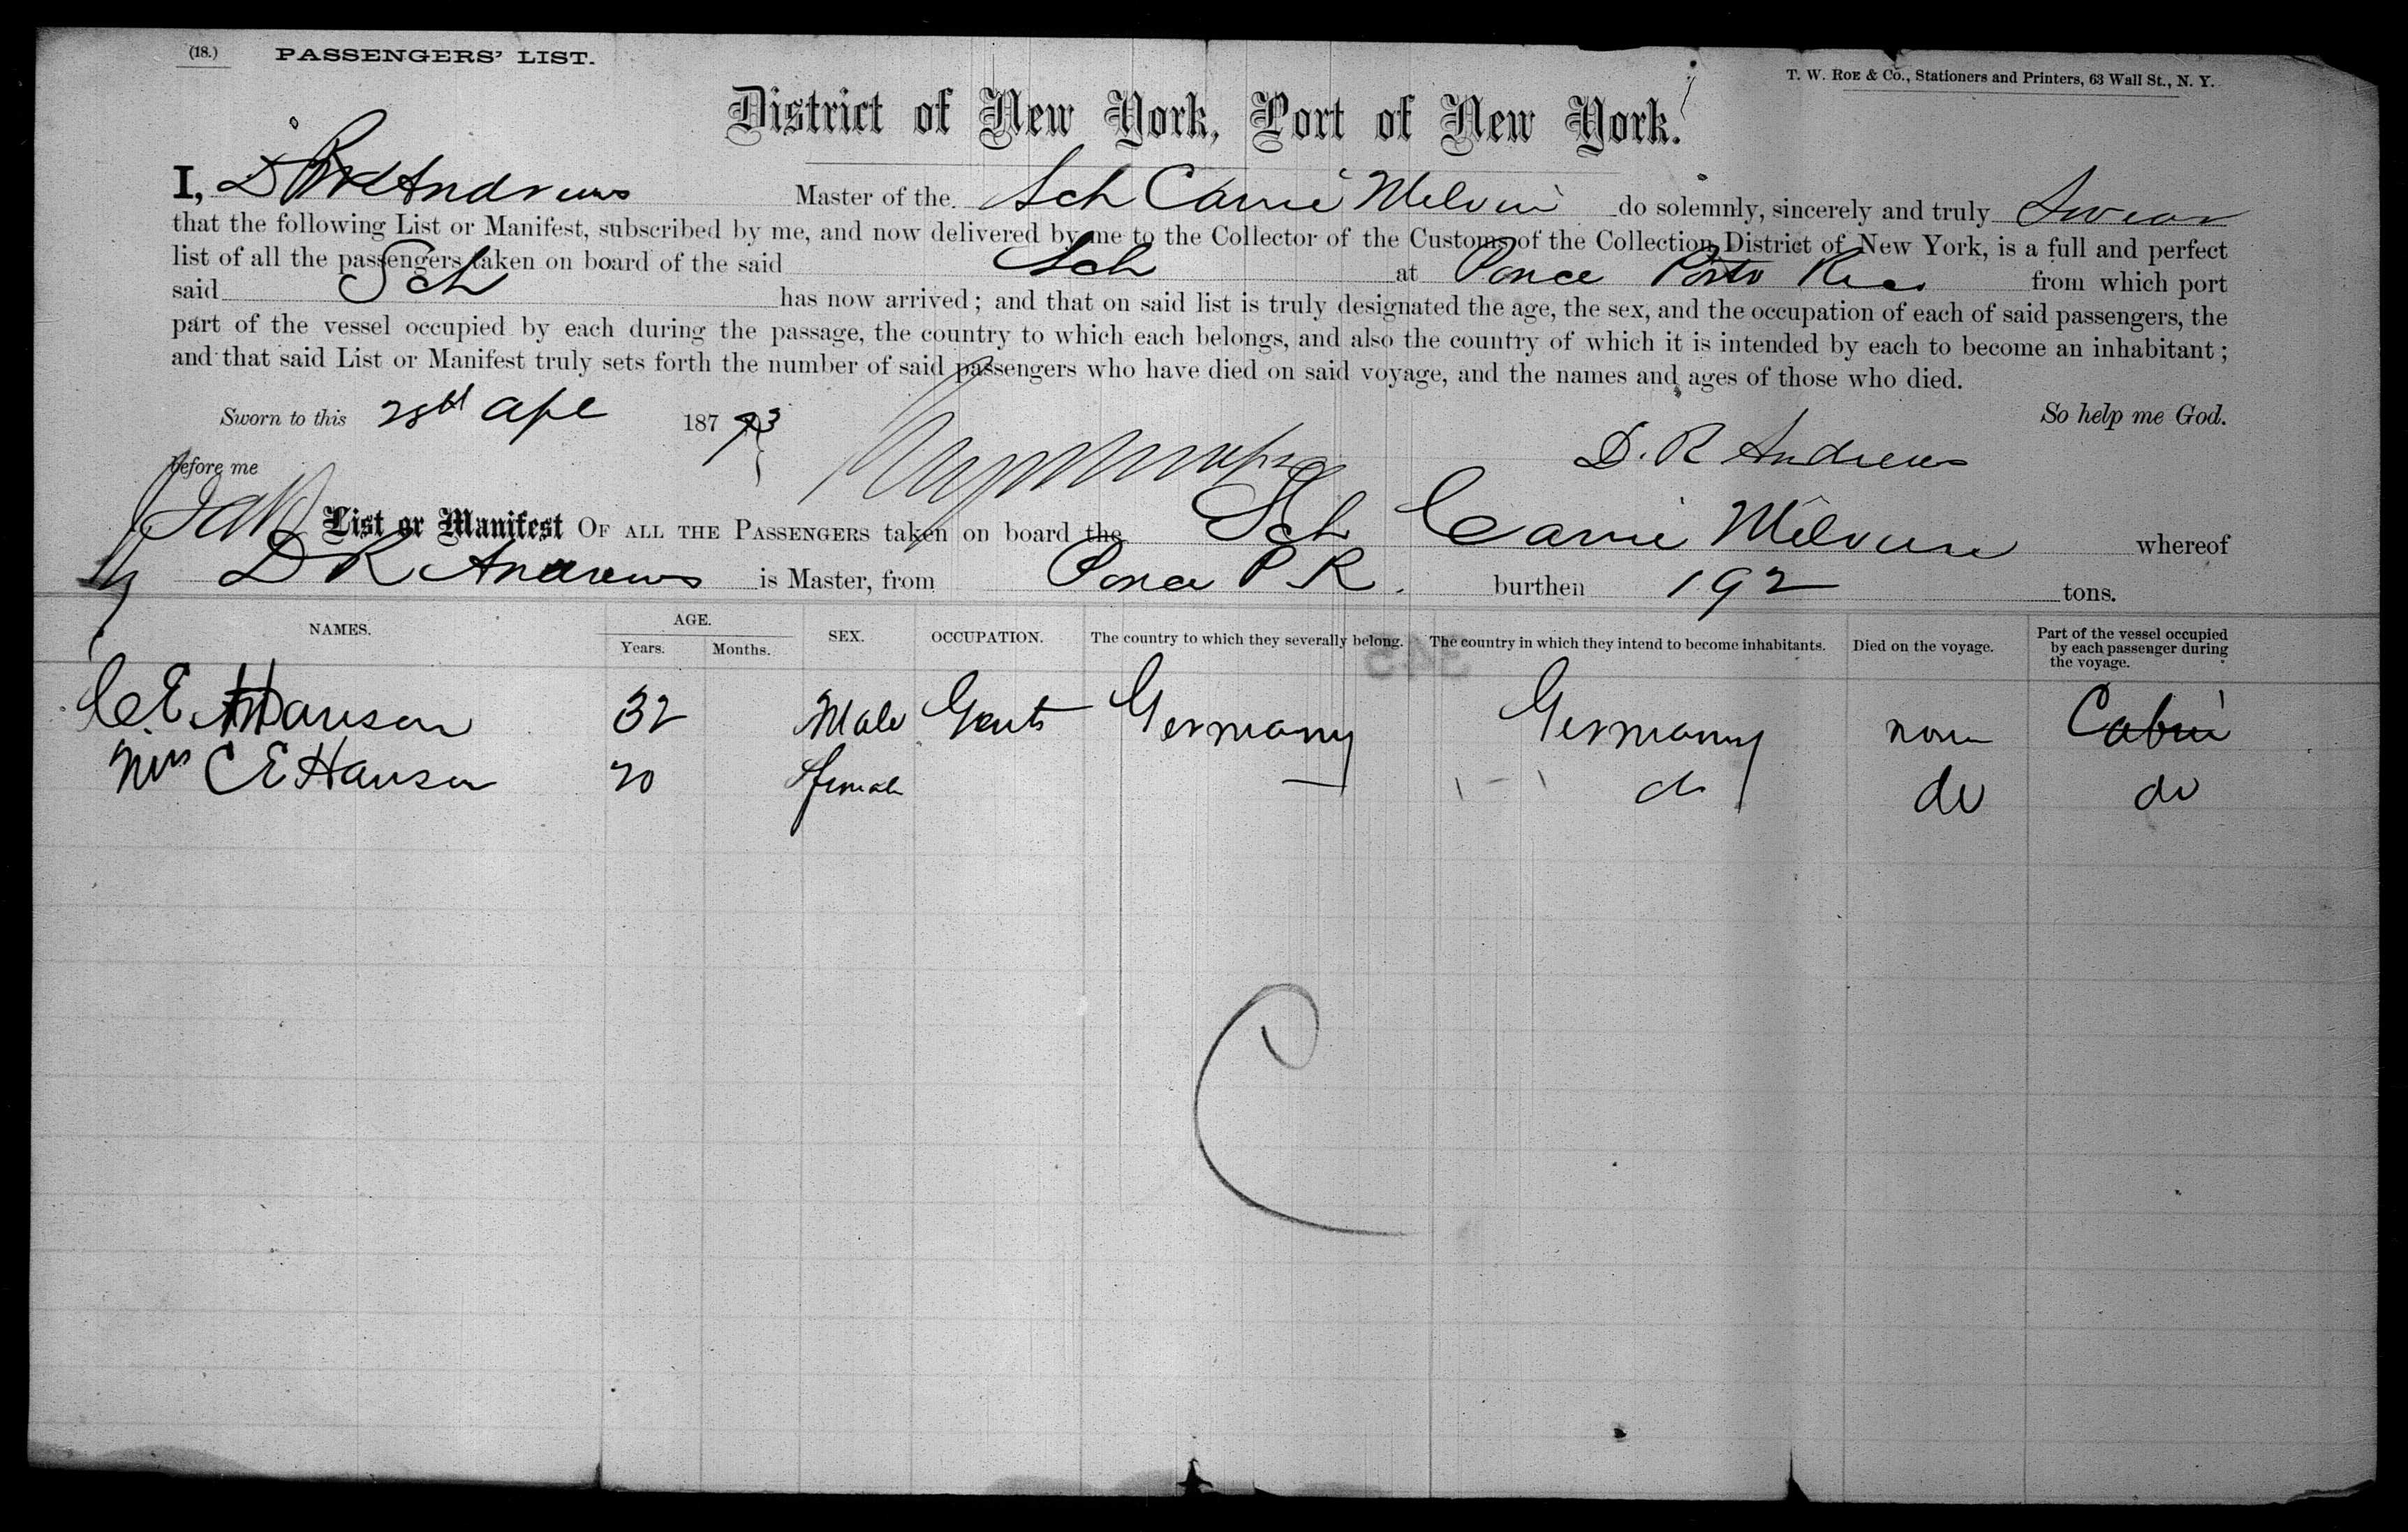 (18.) PASSENGERS' LIST.
T. W. ROE & CO., Stationers and Printers, 63 Wall St., N. Y.
District of New York, Port of New York.
I, D R Andrews Master of the Sch Carrie Melvin do solemnly, sincerely and truly Swear
that the following List or Manifest, subscribed by me, and now delivered by me to the Collector of the Customs of the Collection District of New York, is a full and perfect
list of all the passengers taken on board of the said Sch at Ponce Porto Rico from which port
said Sch has now arrived; and that on said list is truly designated the age, the sex, and the occupation of each of said passengers, the
part of the vessel occupied by each during the passage, the country to which each belongs, and also the country of which it is intended by each to become an inhabitant;
and that said List or Manifest truly sets forth the number of said passengers who have died on said voyage, and the names and ages of those who died.
Sworn to this 28th Apl 187 So help me God.
before me D. R Andrews
List or Manifest OF ALL THE PASSENGERS taken on board the Sch Carrie Melvin whereof
D R Andrews is Master, from Ponce P R. burthen 192 tons.
NAMES. AGE. Years. Months. SEX. OCCUPATION. The country to which they severally belong. The country in which they intend to become inhabitants. Died on the voyage. Part of the vessel occupied by each passenger during the voyage.
C E Hansen 32 Male Gent Germany Germany none Cabin
Mrs C E Hansen 20 female do do do